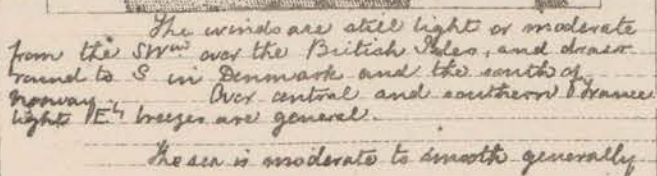 The winds are still light or moderate
from the SWwd over the British Isles, and draw
round to S in Denmark and the south of
Norway. Over central and southern France
light Ely breezes are general.
The sea is moderate to smooth generally